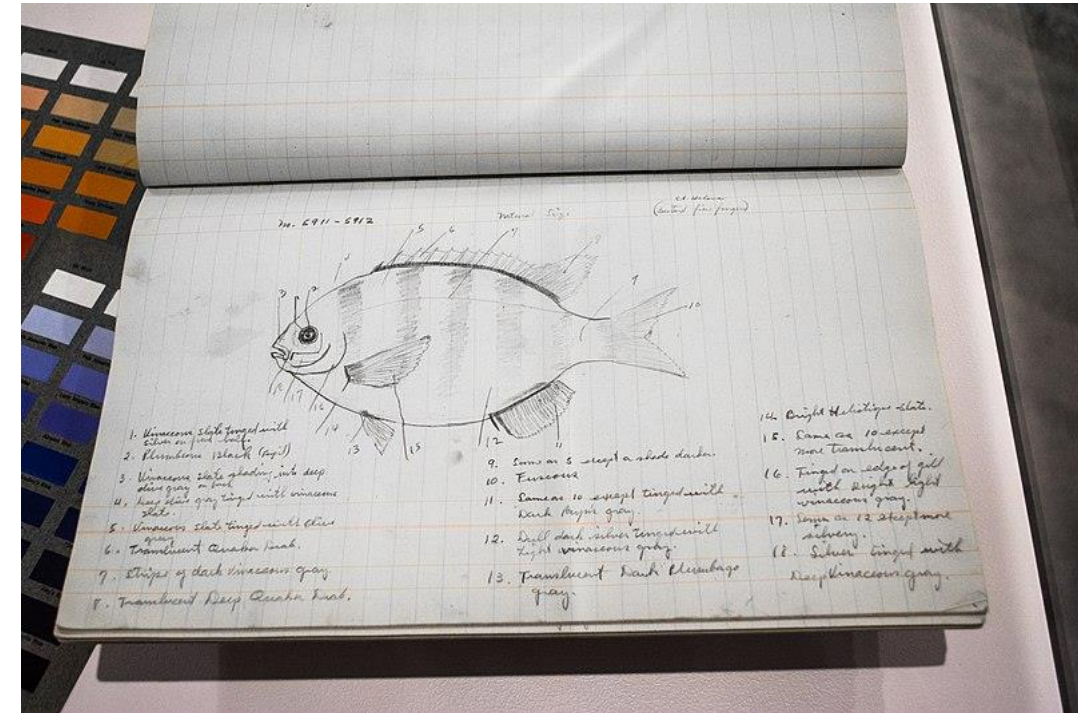 No. 5911-5912
Natural Size
1. Vinaceous Slate tinged with
silver on
2. Plumbeous Black (Pupil)
3. Vinaceous Slate shading into deep
olive gray on
4. Deep olive gray tinged with vinaceous
slate.
5. Vinaceous Slate tinged with Olive
gray
6. Translucent Quaker Drab.
7. Stripe of dark vinaceous gray.
8. Translucent Deep Quaker Drab.
9. Same as 5 except a shade darker
10. Fuscous
11. Same as 10 except tinged with
Dark Payne's gray.
12. Dull dark silver tinged with
Light vinaceous gray.
13. Translucent Dark Plumbago
gray.
14. Bright Heliotrope Slate.
15. Same as 10 except
more translucent.
16. Tinged on edge of gill
with bright light
vinaceous gray.
17. Same as 12 except more
silvery.
18. Silver tinged with
Deep Vinaceous gray.